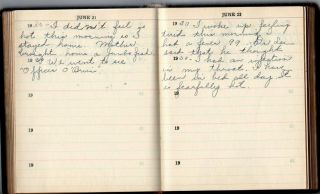 JUNE 21
1930 I did not feel so
hot this morning so I
stayed home. Mother
brought home a
1929 We went to see
Officer O'Brien.
19
19
19
JUNE 22
1930 I woke up feeling
tired this morning. I
had a fever 99. Dr.
said that he thought
1930. I had an infection
in my throat. I have
been in bed all day. It
is fearfully hot.
19
19
19